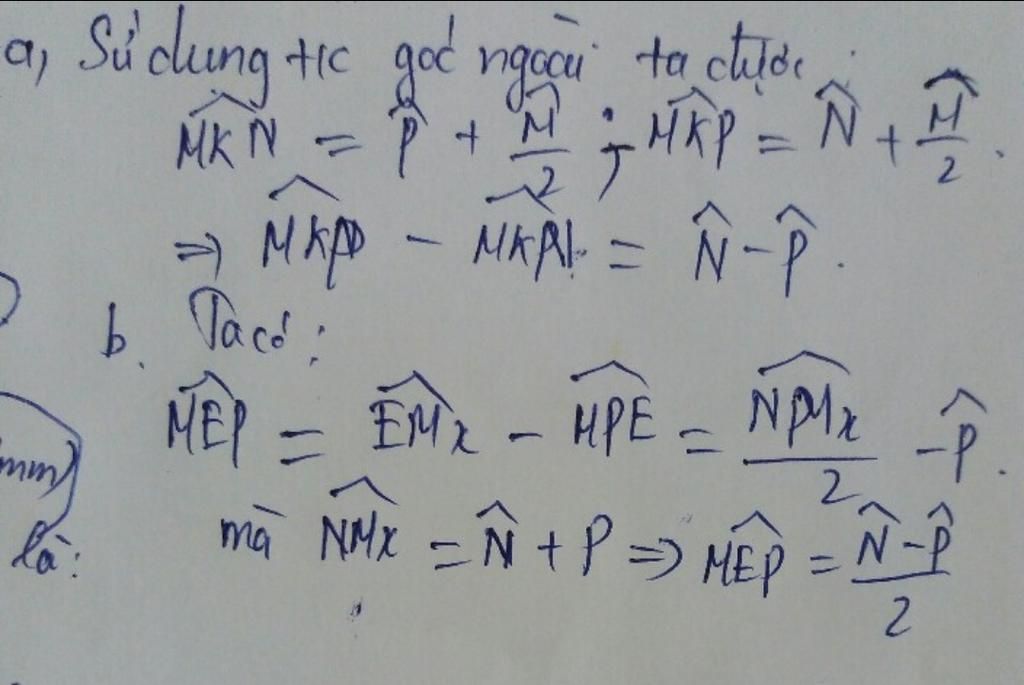 a, Sử dụng t/c góc ngoài ta được
MKN̂ = P̂ + M̂/2 ; MKP̂ = N̂ + M̂/2 .
=> MKP̂ - MKN̂ = N̂ - P̂ .
b. Ta có :
MEP̂ = EMx̂ - MPÊ = NMx̂/2 - P̂ .
mà NMx̂ = N̂ + P => MEP̂ = (N̂ - P̂)/2
mm)
là: